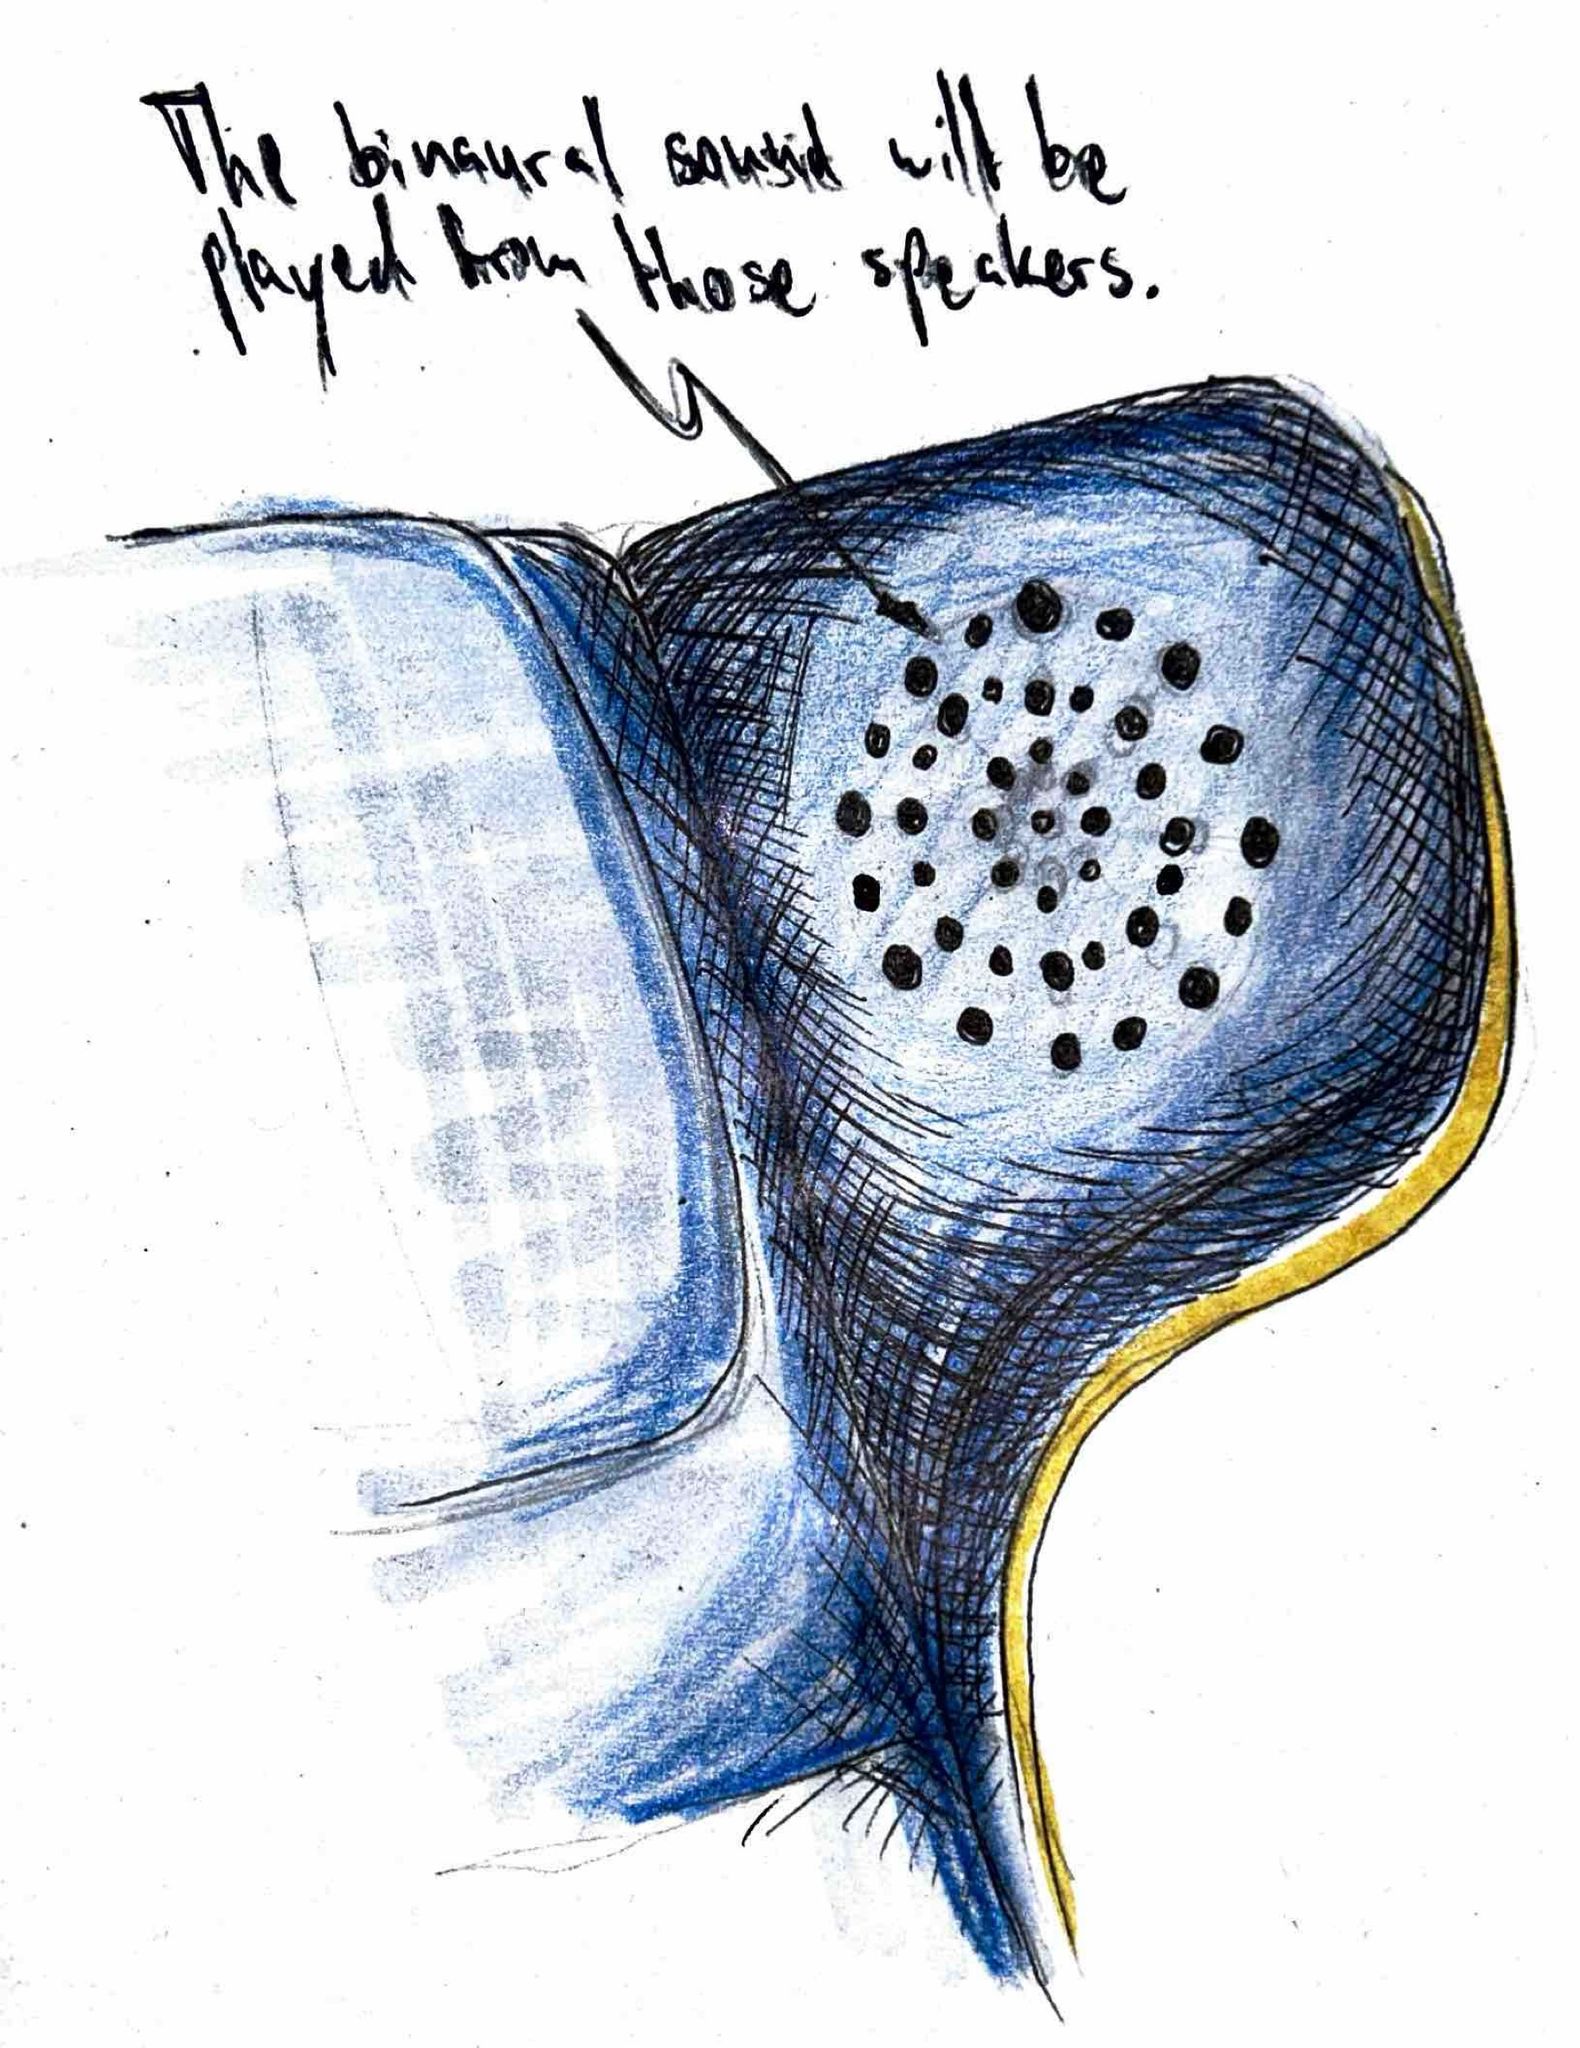 The binaural sound will be
played from those speakers.